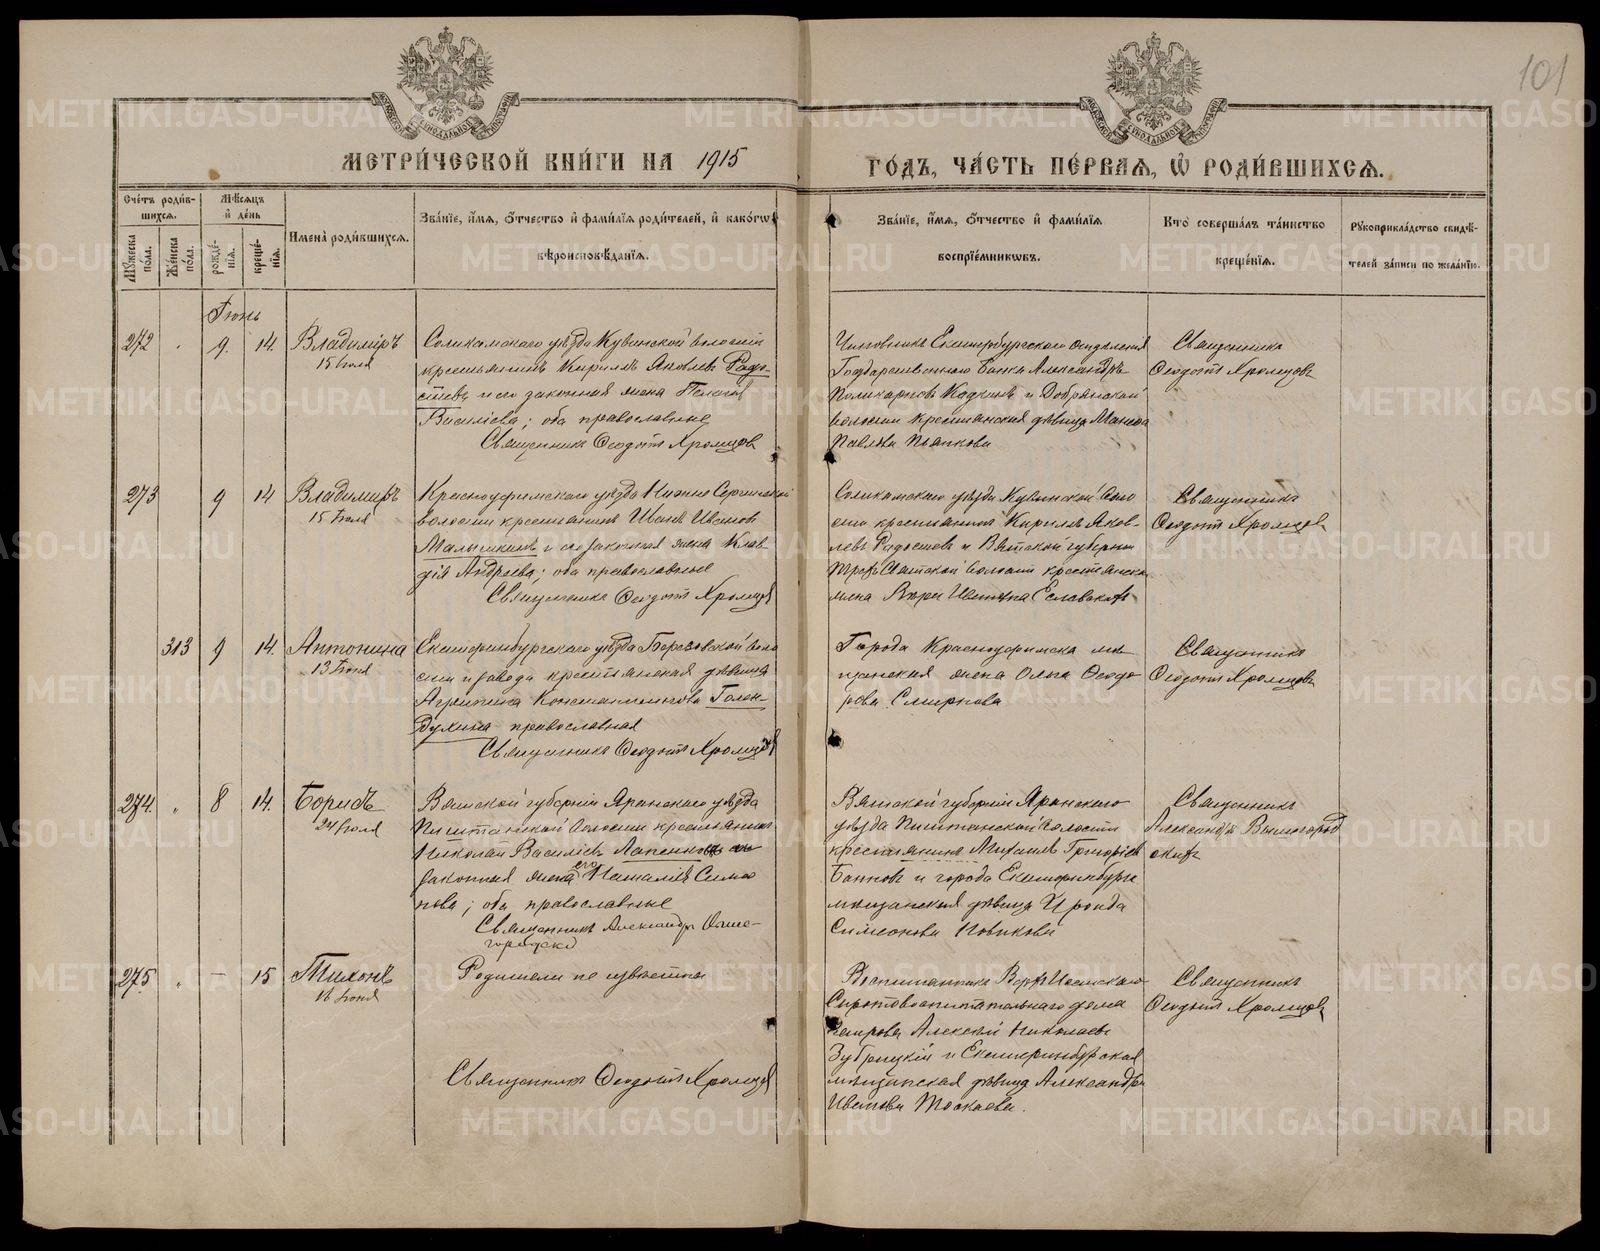 101
МЕТРИ́ЧЕСКОЙ КНИ́ГИ НА 1915
ГО́ДЪ, ЧА́СТЬ ПЕ́РВАЯ, Ѽ РОДИ́ВШИХСЯ.
Сче́тъ роди́в-
шихся.
Мѣ́сяцъ
и҆ де́нь
Мꙋ́жеска по́ла.
Же́нска по́ла.
рожде́-
нїя.
креще́-
нїя.
И҆мена̀ роди́вшихся.
Зва́нїе, и҆́мя, ѻ҆́тчество и҆ фами́лїя роди́телей, и҆ како́гѡ
вѣроисповѣ́данїя.
Зва́нїе, и҆́мя, ѻ҆́тчество и҆ фами́лїя
воспрїе́мникѡвъ.
Кто̀ соверша́лъ та́инство
креще́нїя.
Рꙋкоприкла́дство свидѣ́-
телей за́писи по жела́нїю.
Іюнь
272
9.
14.
Владиміръ
15 Іюля
Соликамскаго уѣзда Кувинской волости
крестьянинъ Кириллъ Яковлевъ Радо-
стевъ и его законная жена Пелагія
Василіева; оба православные
Священникъ Ѳеодотъ Хромцовъ
Чиновникъ Екатеринбургскаго отдѣленія
Государственнаго Банка Александръ
Поликарповъ и Добрянской
волости крестьянская дѣвица
Павлова Пьянкова
Священникъ
Ѳеодотъ Хромцовъ
273
9
14
Владиміръ
15 Іюля
Красноуфимскаго уѣзда Нижне Сергинской
волости крестьянинъ Иванъ Ивановъ
Малышкинъ и его законная жена Клав
дія Андреева; оба православные
Священникъ Ѳеодотъ Хромцовъ
Соликамскаго уѣзда Кувинской воло
сти крестьянинъ Кириллъ Яков
левъ Радостевъ и Вятской губерніи
волости крестьянская
жена Ивановна
Священникъ
Ѳеодотъ Хромцовъ
313
9
14.
Антонина
13 Іюня
Екатеринбургскаго уѣзда Березовской воло
сти и завода крестьянская дѣвица
Агрипина Константинова Голен-
духина православная
Священникъ Ѳеодотъ Хромцовъ
Города Красноуфимска мѣ
щанская жена Ольга Ѳеодо
рова Смирнова
Священникъ
Ѳеодотъ Хромцовъ
274.
8
14.
Борисъ
24 Іюля
Вятской губерніи Яранскаго уѣзда
Пиштанской волости крестьянинъ
Николай Василіевъ и
законная жена его Наталія Симео
нова; оба православные
Священникъ Александръ Выше-
городскій
Вятской губерніи Яранскаго
уѣзда Пиштанской волости
крестьянинъ Михаилъ Григоріевъ
Банновъ и города Екатеринбурга
мѣщанская дѣвица Ираида
Симеонова Новикова
Священникъ
Александръ Вышегород
скій
275
–
15
Тихонъ
16 Іюня
Родители не извѣстны
Священникъ Ѳеодотъ Хромцовъ
Воспитанникъ Верхъ Исетскаго
Сиротовоспитательнаго дома
Петровъ Алексѣй Николаевъ
Зубрицкій и Екатеринбургская
мѣщанская дѣвица Александра
Иванова Токкаева.
Священникъ
Ѳеодотъ Хромцовъ
METRIKI.GASO-URAL.RU